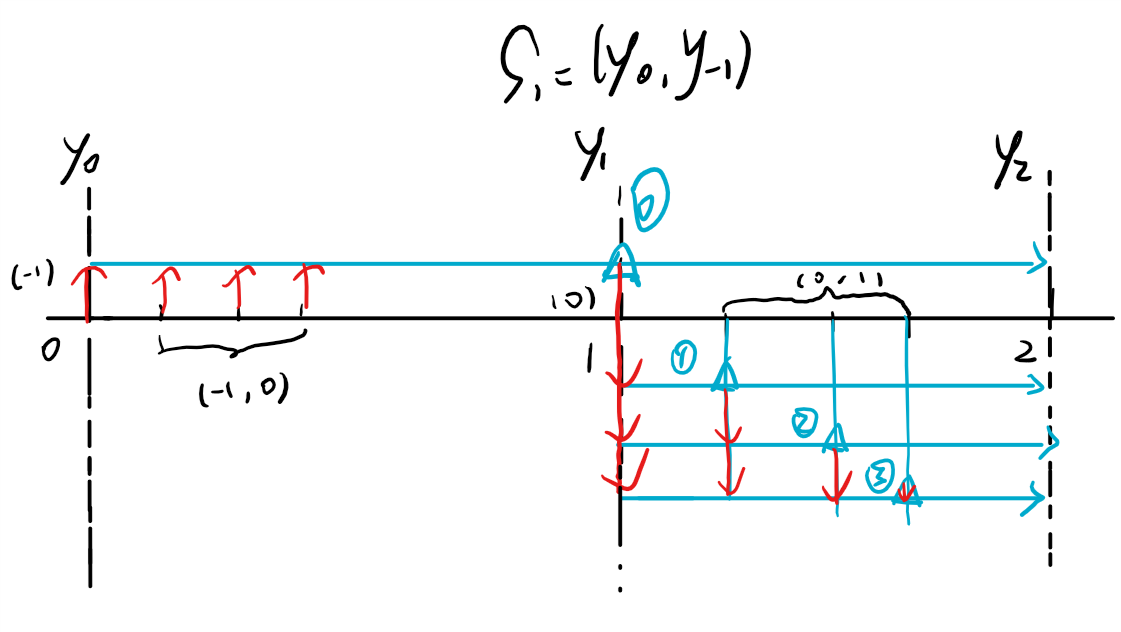 S₁=(y₀,y₋₁)
y₀ y₁ y₂
0
(-1) (0) (0,1)
0 1 ① 2
(-1,0) ②
③